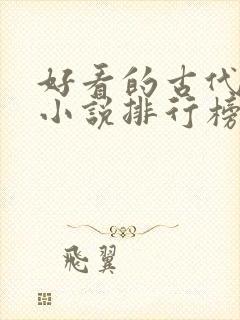 好看的古代
小説排行榜
飛翼